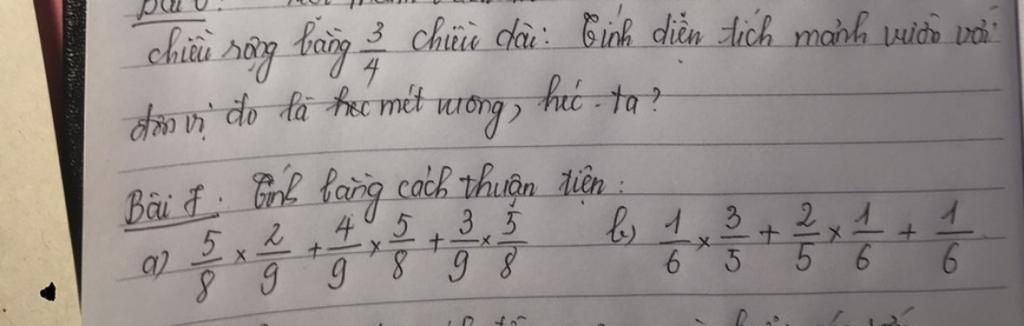 Bài 6:
chiều rộng bằng 3/4 chiều dài: Tính diện tích mảnh vườn với
đơn vị đo là mét vuông, héc-ta?
Bài 7. Tính bằng cách thuận tiện:
a) 5/8 × 2/9 + 4/9 × 5/8 + 3/9 × 5/8 b) 1/6 × 3/5 + 2/5 × 1/6 + 1/6